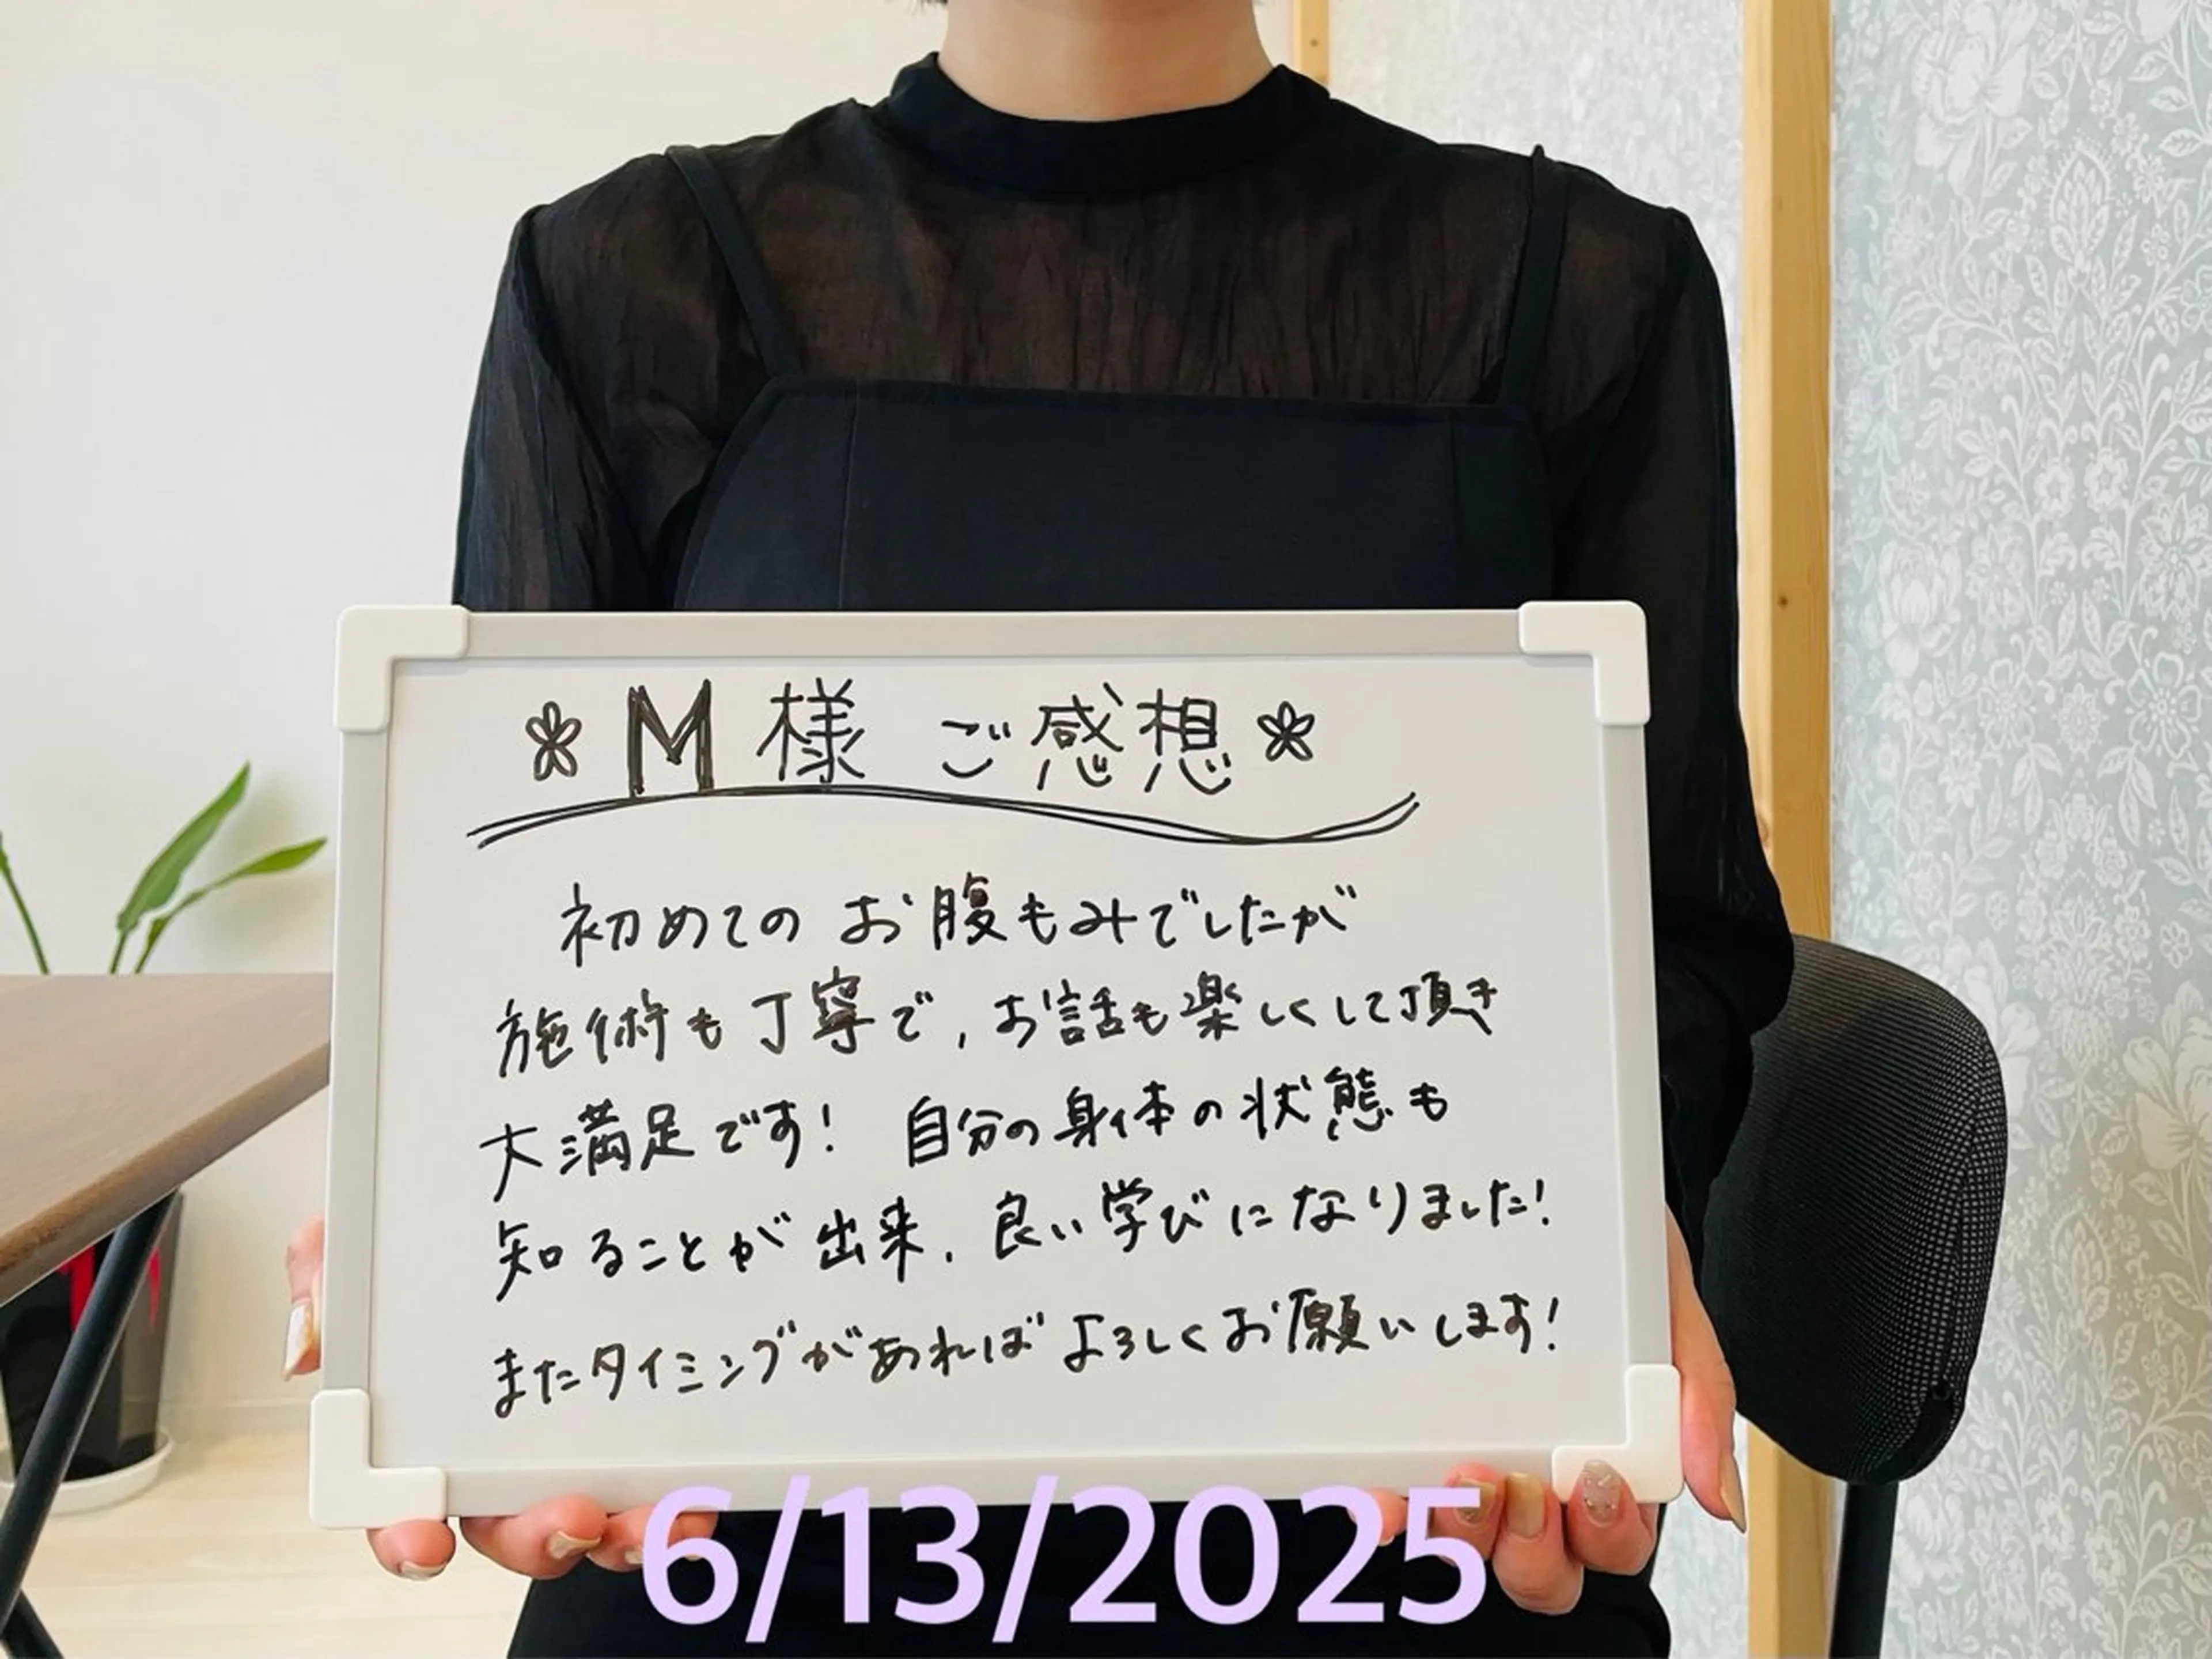 M様 ご感想
初めてのお腹もみでしたが
施術も丁寧で、お話も楽しくして頂き
大満足です! 自分の身体の状態も
知ることが出来、良い学びになりました!
またタイミングがあればよろしくお願いします!
6/13/2025